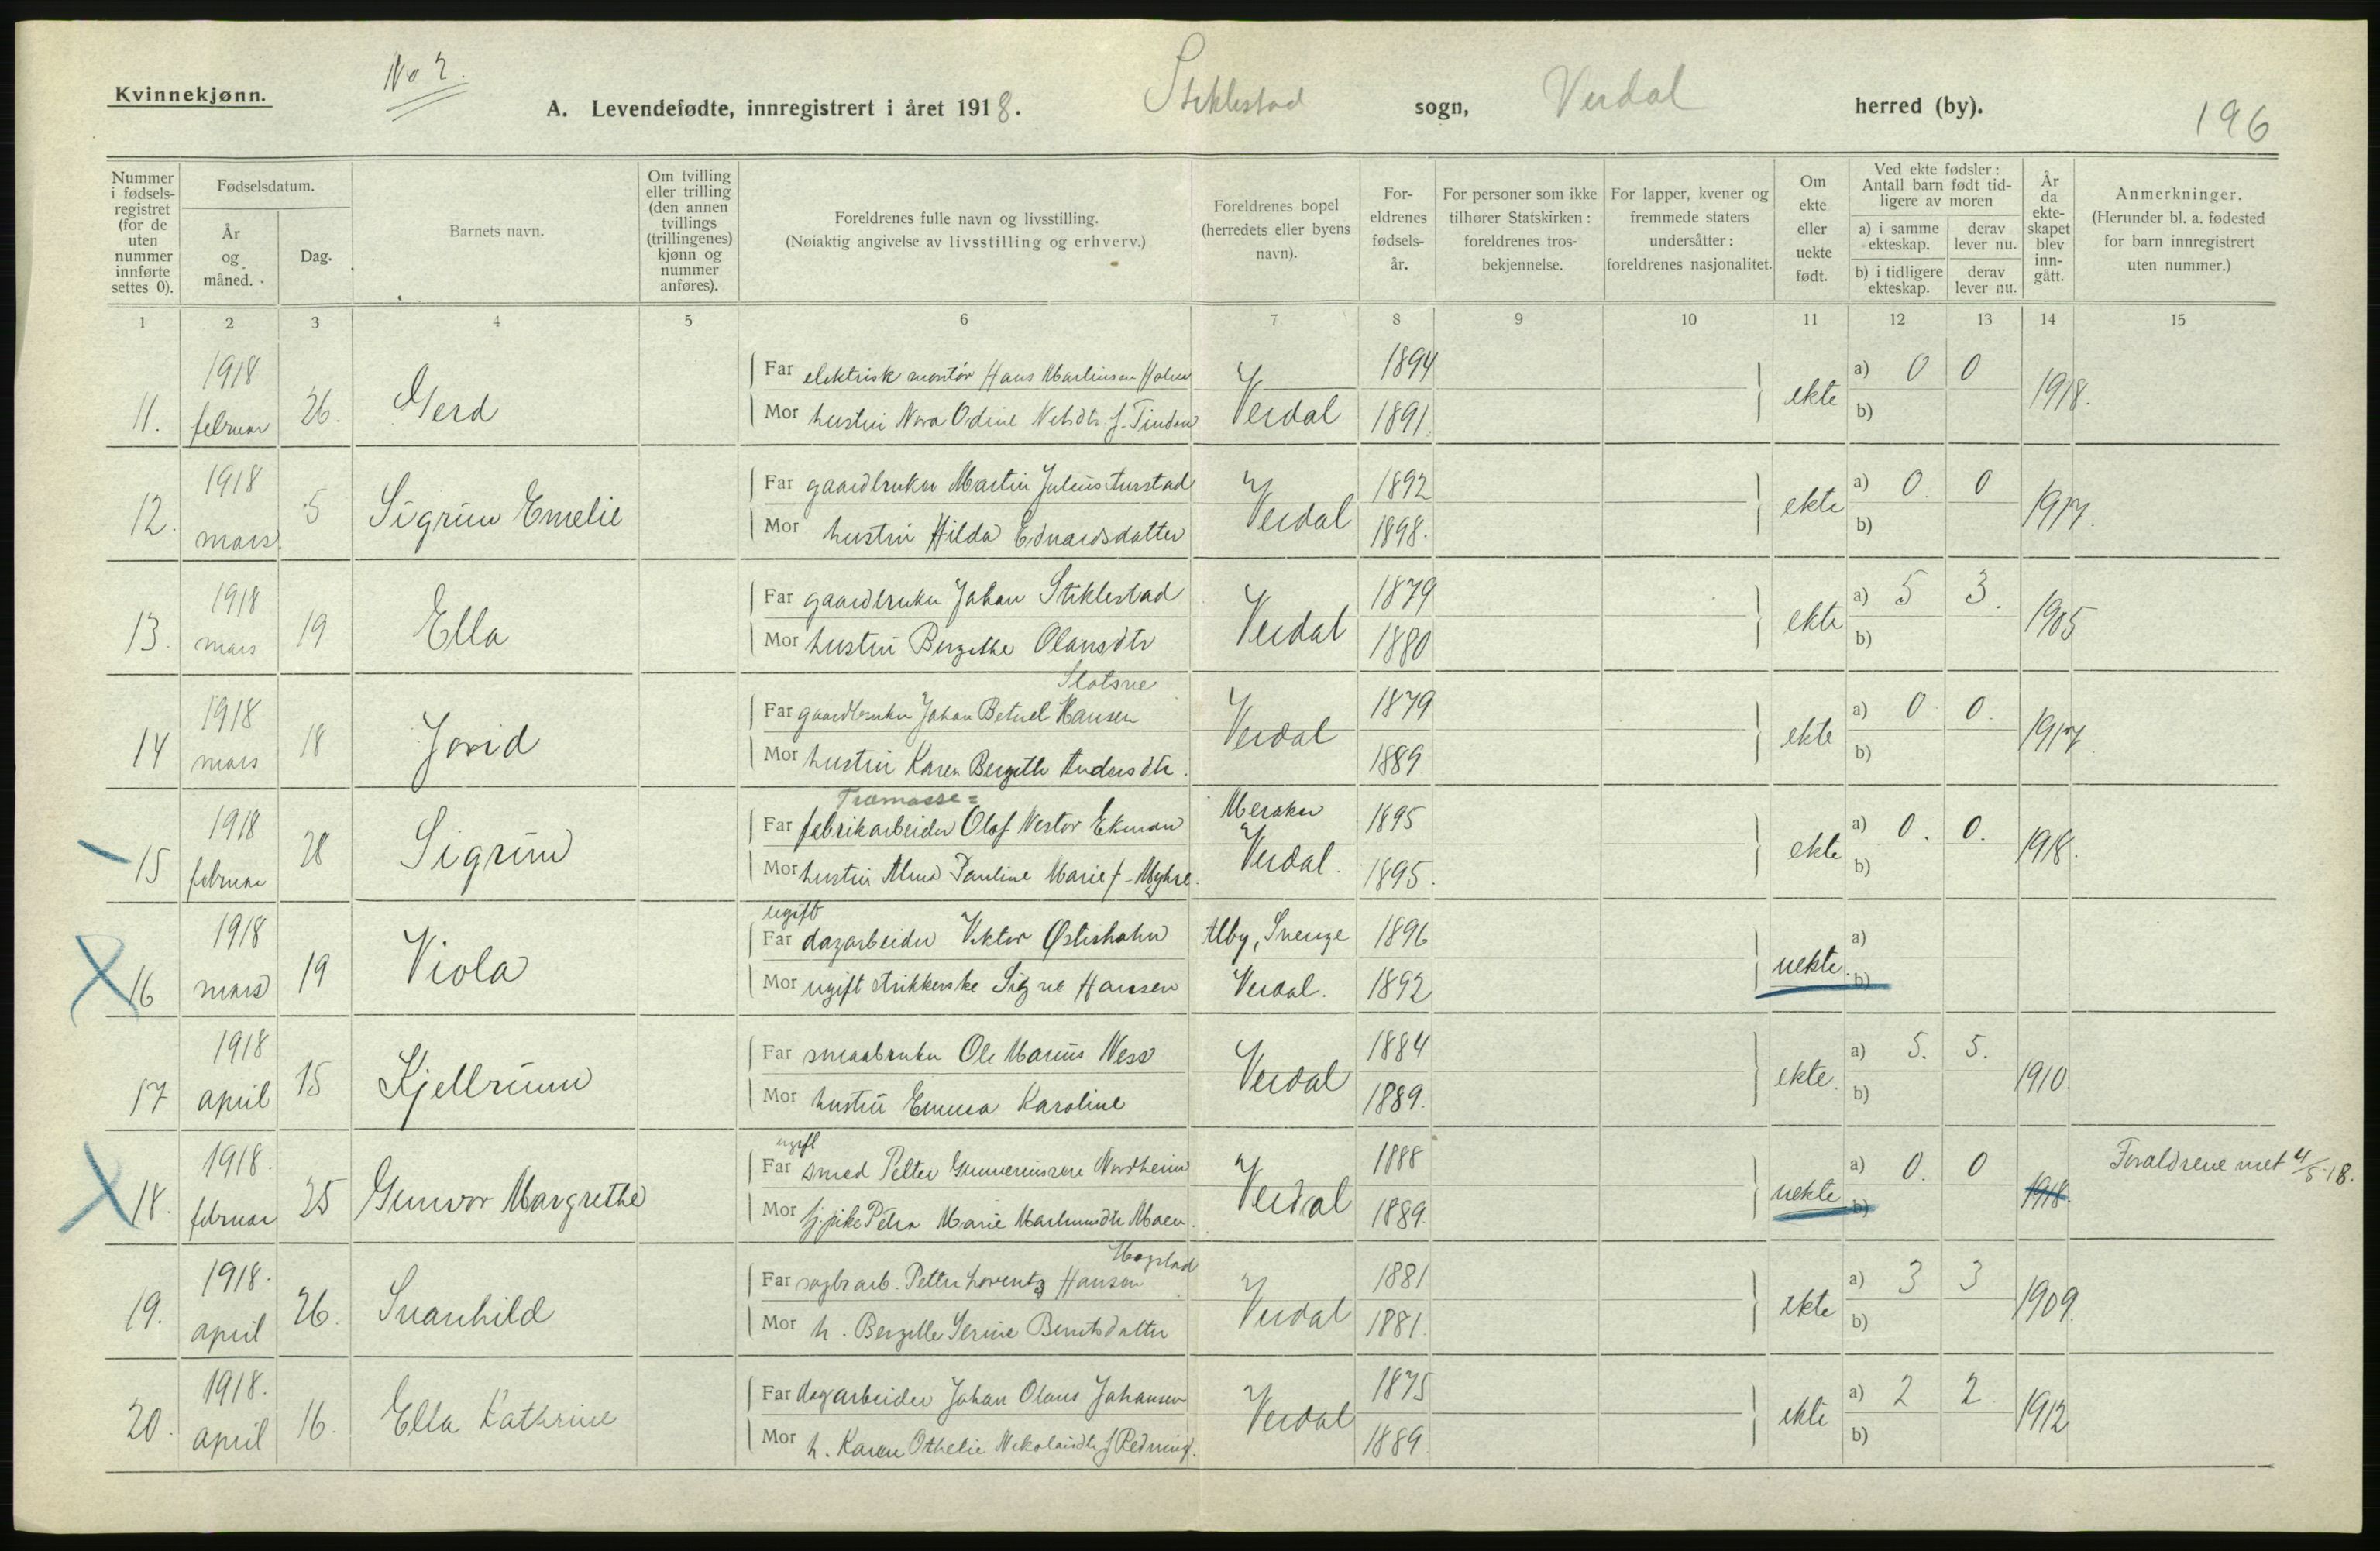 Kvinnekjønn.
No 2.
A. Levendefødte, innregistrert i året 1918.
Stiklestad sogn, Verdal herred (by).
196
Nummer i fødsels-registret (for de uten nummer innførte settes 0).
Fødselsdatum.
År og måned.
Dag.
Barnets navn.
Om tvilling eller trilling (den annen tvillings (trillingenes) kjønn og nummer anføres).
Foreldrenes fulle navn og livsstilling.
(Nøiaktig angivelse av livsstilling og erhverv.)
Foreldrenes bopel (herredets eller byens navn).
For-eldrenes fødsels-år.
For personer som ikke tilhører Statskirken: foreldrenes tros-bekjennelse.
For lapper, kvener og fremmede staters undersåtter: foreldrenes nasjonalitet.
Om ekte eller uekte født.
Ved ekte fødsler: Antall barn født tid-ligere av moren
a) i samme ekteskap.
derav lever nu.
b) i tidligere ekteskap.
derav lever nu.
År da ekte-skapet blev inn-gått.
Anmerkninger.
(Herunder bl. a. fødested for barn innregistrert uten nummer.)
1 2 3 4 5 6 7 8 9 10 11 12 13 14 15
1918 Far elektrisk montør Hans Martinsen Holm 1894 a) 0 0
11. februar 26. Gerd Mor hustru Nora Odine f. Tinden Verdal 1891. ekte b) 1918.
1918 Far gaardbruker Martin Julius 1892 a) 0. 0
12. mars. 5 Sigrun Emelie Mor hustru Hilda Eduardsdatter Verdal 1898. ekte b) 1917.
1918 Far gaardbruker Johan Stiklestad 1879 a) 5 3.
13. mars 19 Ella Mor hustru Bergithe Olausdtr Verdal 1880 ekte b) 1905
Slotsve
1918 Far gaardbruker Johan Betuel Hansen 1879 a) 0 0.
14 mars 18 Jorid Mor hustru Karen Bergitte Andersdtr. Verdal 1889 ekte b) 1917.
Træmasse=
1918 Far fabrikarbeider Olaf Nestor Ekman Meraker 1895 a) 0. 0.
15 februar 28 Sigrun Mor hustru Alma Pauline Marie f. Myhre. Verdal. 1895. ekte b) 1918.
ugift
1918 Far dagarbeider Viktor Østerholm Alby, Sverige 1896 a)
16 mars 19 Viola Mor ugift strikkerske Signe Hansen Verdal. 1892 uekte. b)
1918 Far smaabruker Ole Marius Ness 1884 a) 5. 5.
17 april 15 Kjellrunn Mor hustru Emma Karoline Verdal 1889. ekte. b) 1910.
ugift
1918. Far smed Petter Nordheim 1888 a) 0. 0 Forældrene viet 4/5 18.
18. februar 25 Gunvor Margrethe Mor pike Petra Marie Moen. Verdal 1889. uekte b) 1918.
1918. Far sagbr.arb. Petter Lorents Hansen 1881 a) 3 3
19. april 26. Svanhild Mor h. Bergitte Serine Berntsdatter Verdal 1881. ekte b) 1909.
1918. Far dagarbeider Johan Olaus Johansen 1875 a) 2 2
20. april 16. Ella Kathrine Mor h. Karen Othelie Nikolaisdtr f. Verdal 1889 ekte b) 1912